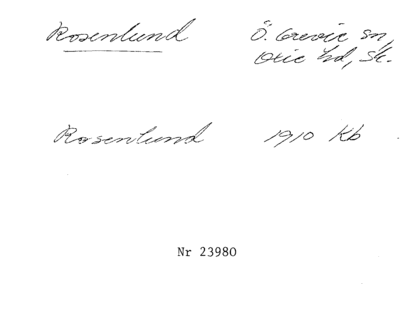 Rosenlund Ö. Grevie sn,
Oxie hd, Sk.
Rosenlund 1910 Kb
Nr 23980